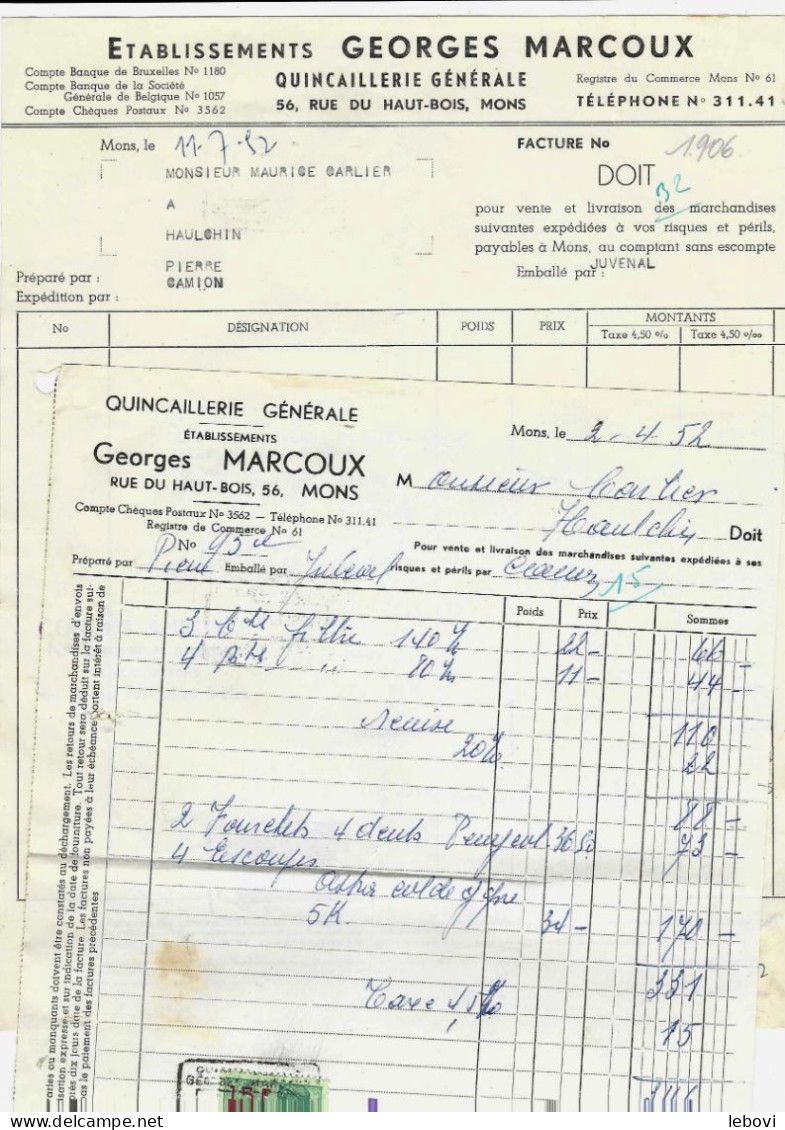 ETABLISSEMENTS GEORGES MARCOUX
Compte Banque de Bruxelles No 1180
Compte Banque de la Société
Générale de Belgique No 1057
Compte Chèques Postaux No 3562
QUINCAILLERIE GÉNÉRALE
56, RUE DU HAUT-BOIS, MONS
Registre du Commerce Mons No 61
TÉLÉPHONE No 311.41
Mons, le 11-7-52
FACTURE No 1.906
MONSIEUR MAURICE CARLIER
A
HAULCHIN
PIERRE
CAMION
DOIT
B2
pour vente et livraison des marchandises
suivantes expédiées à vos risques et périls,
payables à Mons, au comptant sans escompte
Emballé par : JUVENAL
Préparé par :
Expédition par :
No DÉSIGNATION POIDS PRIX MONTANTS
Taxe 4,50 % Taxe 4,50 ‰
QUINCAILLERIE GÉNÉRALE
ÉTABLISSEMENTS
Georges MARCOUX
RUE DU HAUT-BOIS, 56, MONS
Compte Chèques Postaux No 3562 — Téléphone No 311.41
Registre de Commerce No 61
Mons, le 2-4-52
Monsieur Carlier
Haulchin Doit
No
Pour vente et livraison des marchandises suivantes expédiées à ses
Préparé par Pierre Emballé par Juvénal risques et périls par 15
Poids Prix Sommes
3 filtre 140 22- 66-
4 " 80 11- 44-
Remise 110
20% 22
88-
2 Fourchets 4 dents Peugeot 36.50 73-
4
5K 34- 170-
331
Taxe 4,5% 15
346
aries ou manquants doivent être constatés au déchargement. Les retours de marchandises d'envois
isation expresse et sur indication de la date de fourniture. Tout retour sera déduit sur la facture sui-
près dix jours date de la facture. Les factures non payées à leur échéance portent intérêt à raison de
as le paiement des factures précédentes
2
lebovi / delcampe.net